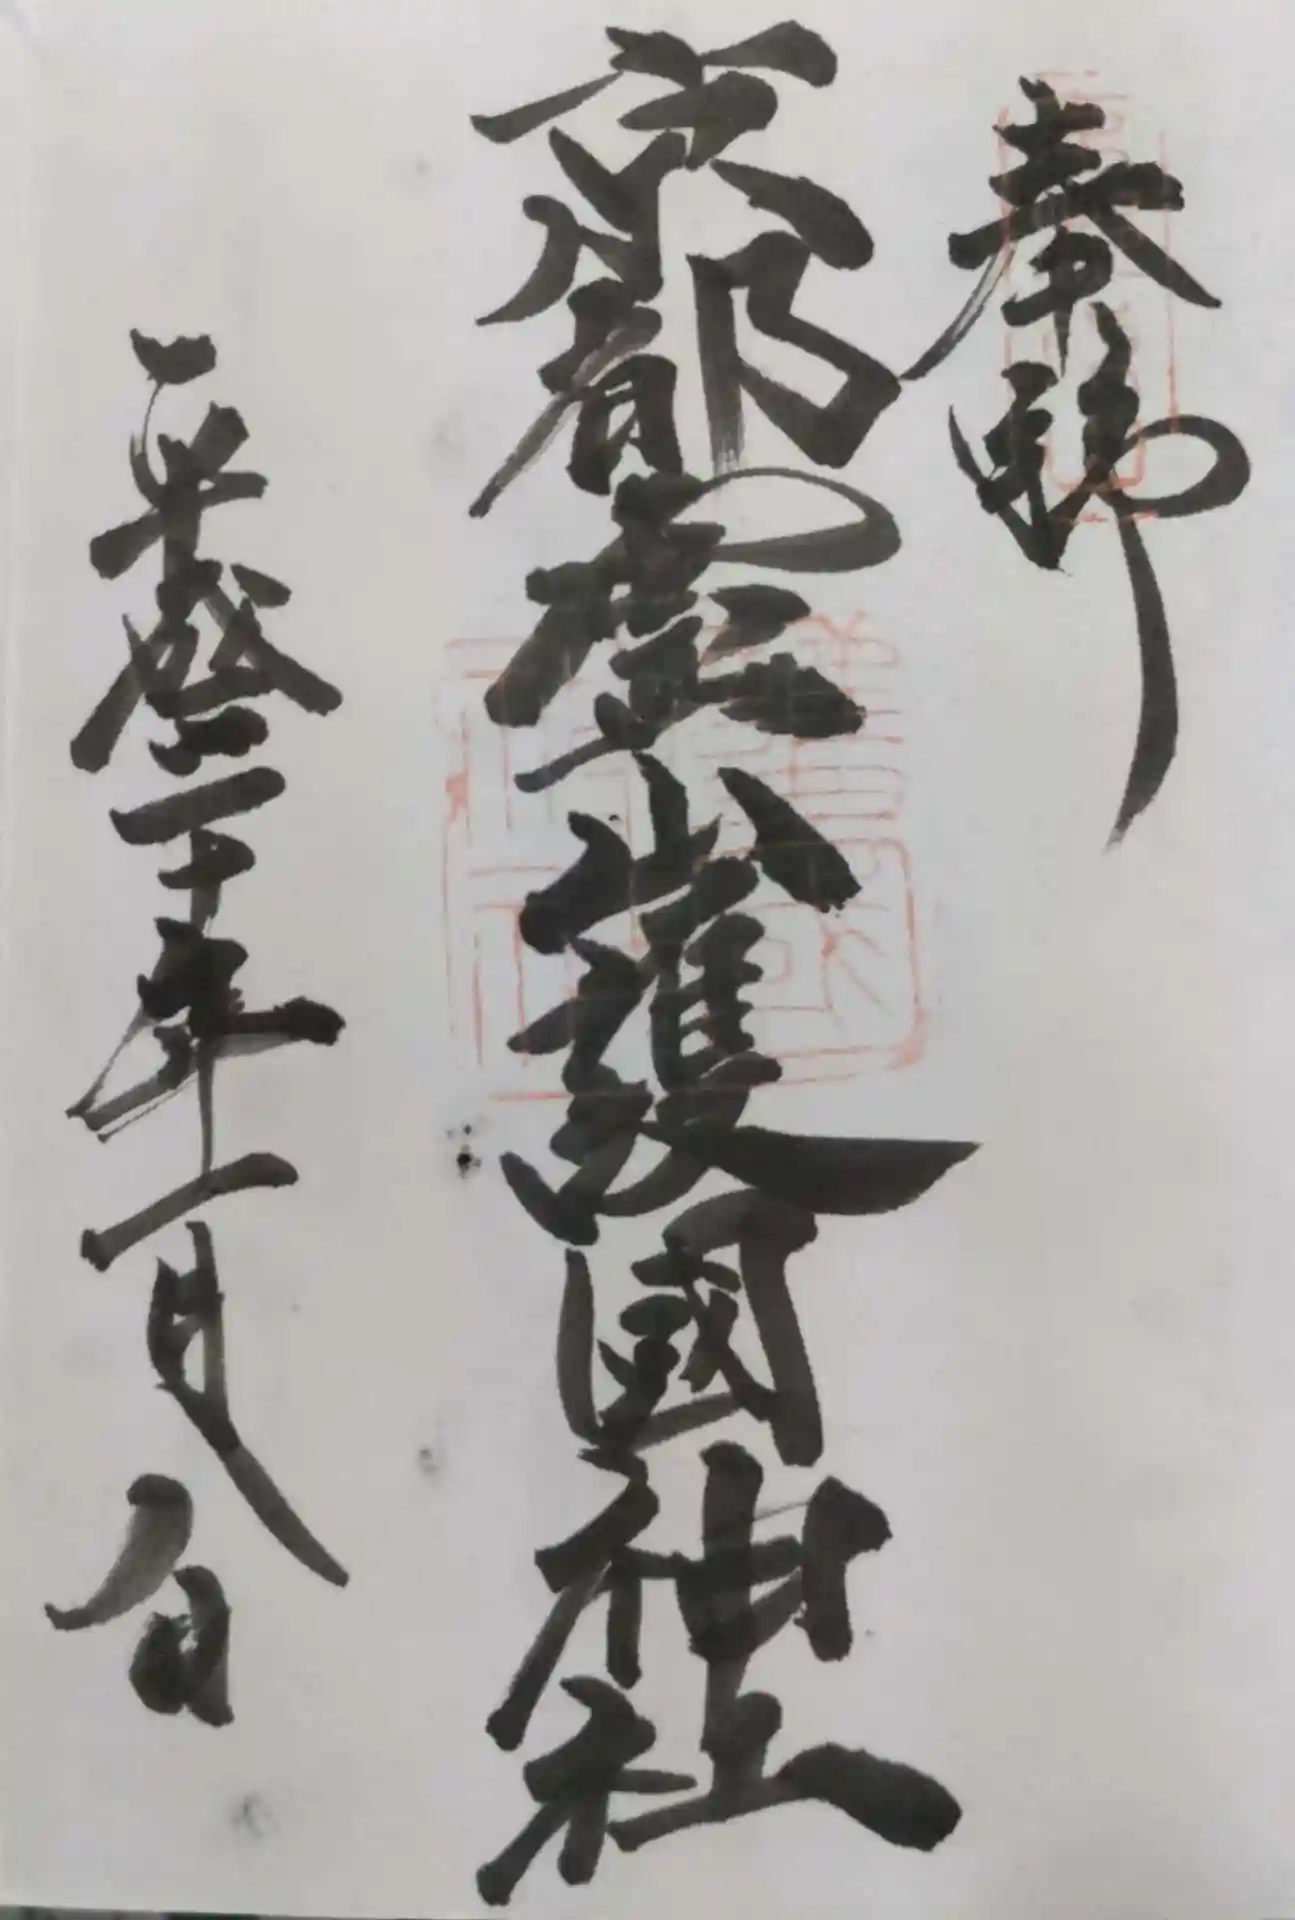 奉拝
京都霊山護國神社
平成三十年一月八日